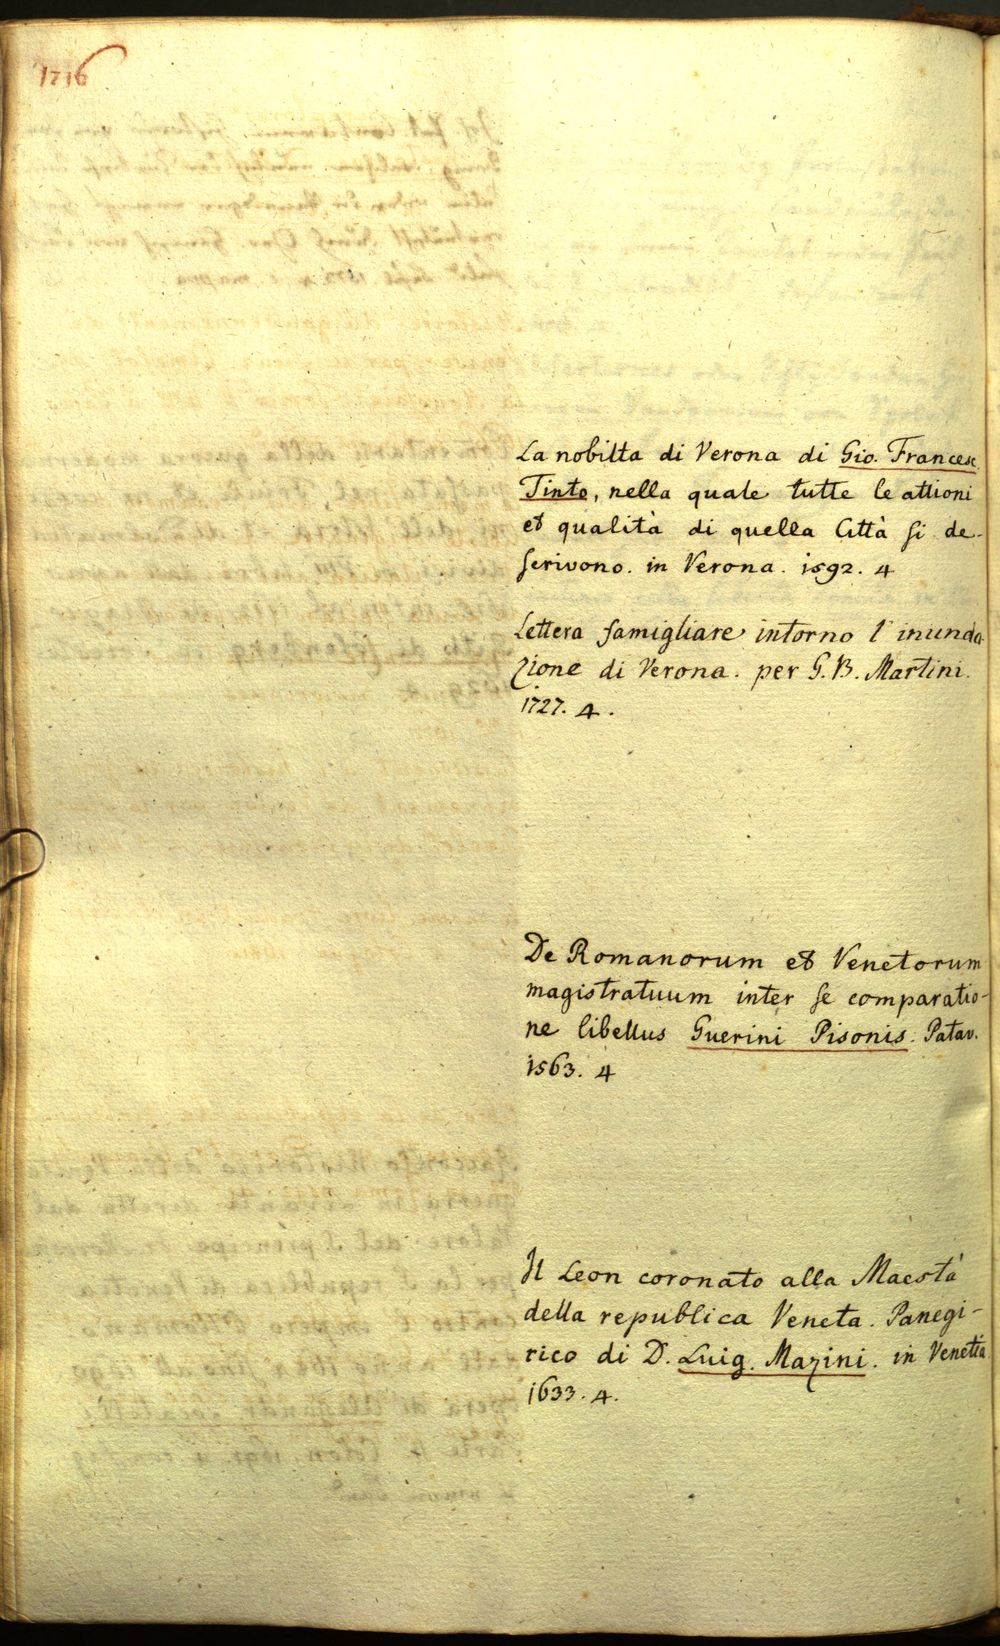 1716
La nobilta di Verona di Gio. Francesc.
Tinto, nella quale tutte le attioni
et qualità di quella Città si de-
scrivono. in Verona. 1592. 4
Lettera famigliare intorno l'inunda
zione di Verona. per G. B. Martini.
1727. 4.
De Romanorum et Venetorum
magistratuum inter se comparatio-
ne libellus Guerini Pisonis. Patav.
1563. 4
Il Leon coronato alla Maestà
della republica Veneta. Panegi-
rico di D. Luig. Mazini. in Venetia
1633. 4.